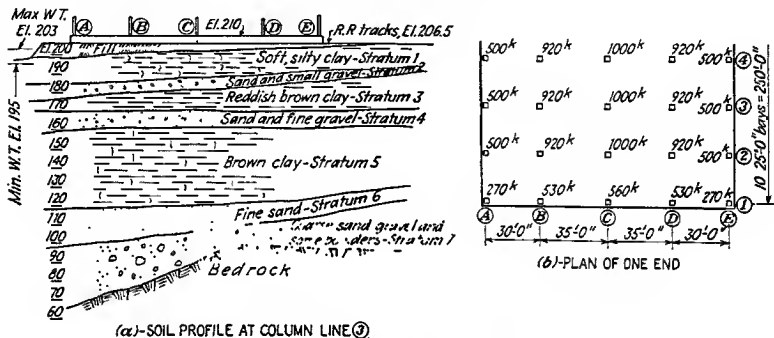 Max W.T.
El. 203
Ⓐ Ⓑ Ⓒ El.210 Ⓓ Ⓔ
R.R tracks, El.206.5
El.200 Fill
Soft, silty clay-Stratum 1
190
Sand and small gravel-Stratum 2
180
Reddish brown clay-Stratum 3
170
Sand and fine gravel-Stratum 4
160
150
140
Brown clay-Stratum 5
130
120
Fine sand-Stratum 6
110
sand gravel and
100
-Stratum 7
90
80
Bedrock
70
60
Min. W.T. El. 195
(a)-SOIL PROFILE AT COLUMN LINE ③
500k 920k 1000k 920k 500k ④
500k 920k 1000k 920k 500k ③
500k 920k 1000k 920k 500k ②
270k 530k 560k 530k 270k ①
Ⓐ Ⓑ Ⓒ Ⓓ Ⓔ
30'-0" 35'-0" 35'-0" 30'-0"
10 25'-0" bays = 250'-0"
(b)-PLAN OF ONE END